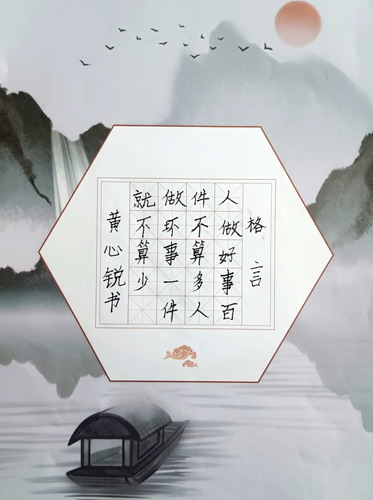 格言
人做好事百
件不算多人
做坏事一件
就不算少
黄心锐书